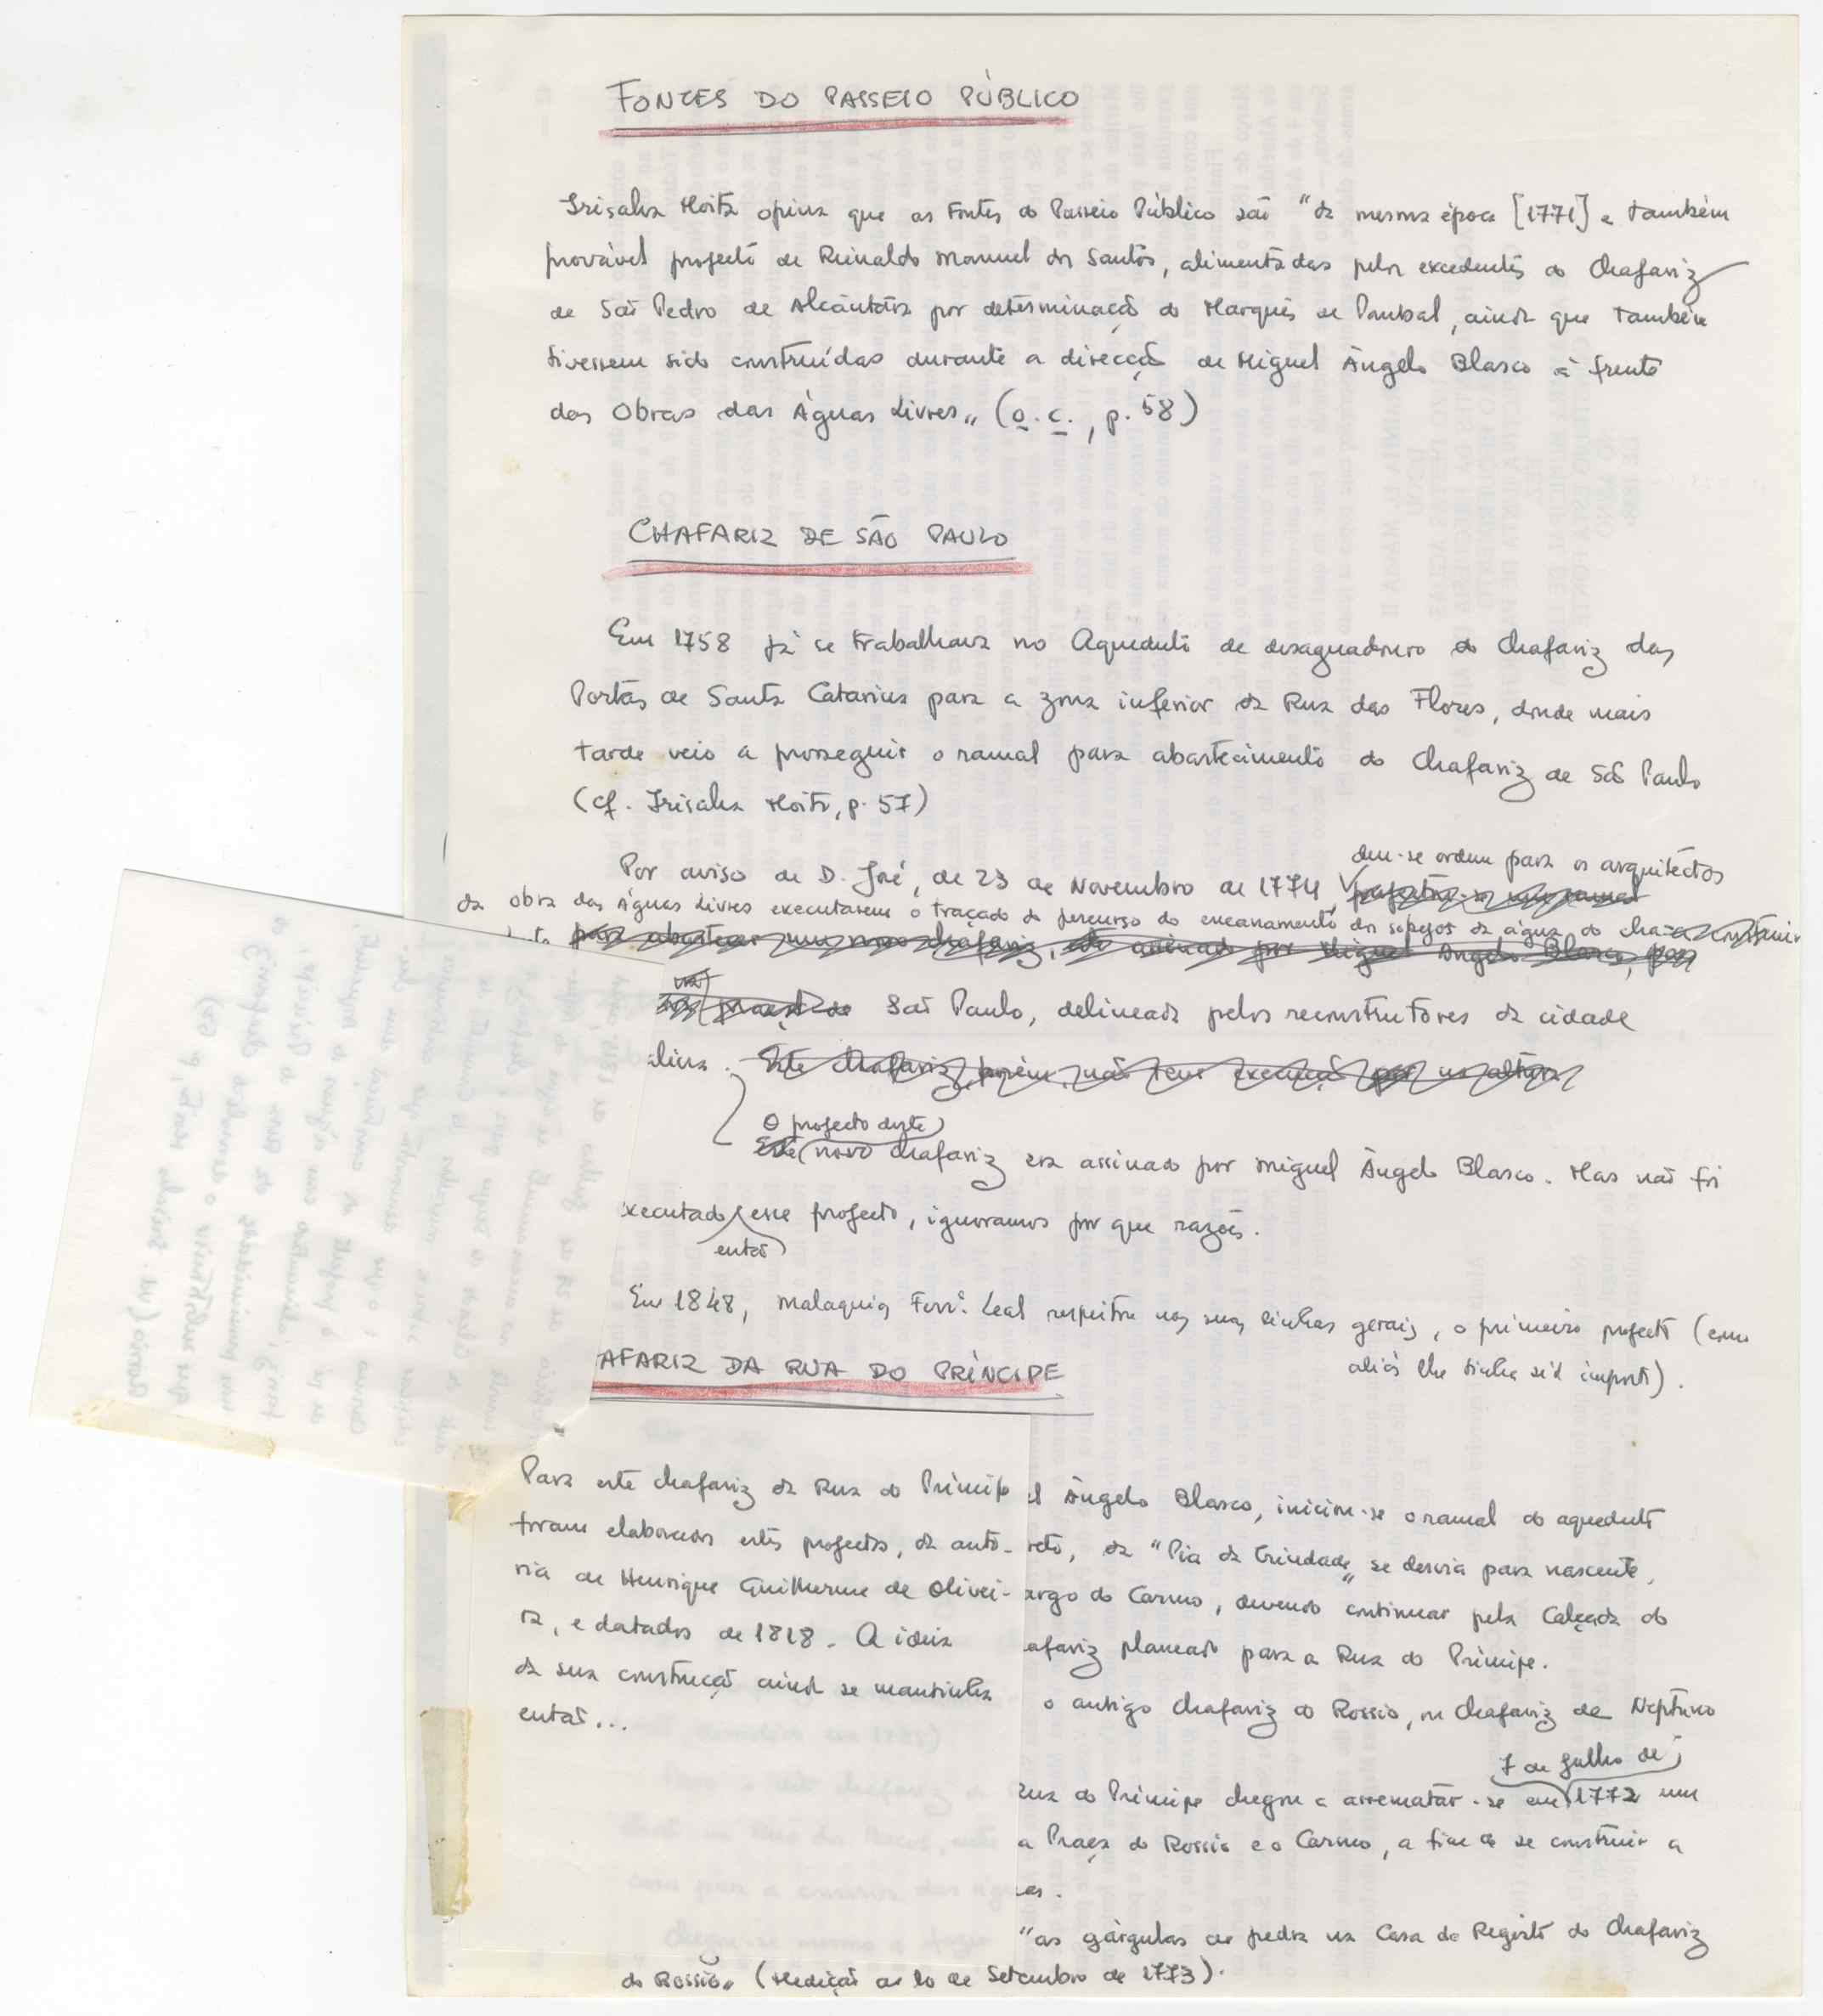 FONTES DO PASSEIO PÚBLICO
Irisalva Moita opina que as Fontes do Passeio Público são "da mesma época [1771] e também
provável projecto de Reinaldo Manuel dos Santos, alimentadas pelos excedentes do Chafariz
de São Pedro de Alcântara por determinação do Marquês de Pombal, ainda que também
tivessem sido construídas durante a direcção de Miguel Ângelo Blasco à frente
das Obras das Águas Livres" (o. c., p. 58)
CHAFARIZ DE SÃO PAULO
Em 1758 já se trabalhava no Aqueduto de desaguadouro do Chafariz das
Portas de Santa Catarina para a zona inferior da Rua das Flores, donde mais
tarde veio a prosseguir o ramal para abastecimento do Chafariz de São Paulo
(cf. Irisalva Moita, p. 57)
Por aviso de D. José, de 23 de Novembro de 1774, deu-se ordem para os arquitectos
da obra das Águas Livres executarem o traçado do percurso do encanamento dos sobejos da água do cha-
para abastecer um novo chafariz, assinado por Miguel Ângelo Blasco, para
praça de São Paulo, delineada pelos reconstrutores da cidade
alina. Este chafariz, porém, não teve execução na altura
O projecto deste
Este novo chafariz era assinado por Miguel Ângelo Blasco. Mas não foi
xecutado esse projecto, ignoramos por que razões.
então
Em 1848, Malaquias Ferrª. Leal respeitou nas suas linhas gerais, o primeiro projecto (como
aliás lhe tinha sido imposto).
AFARIZ DA RUA DO PRÍNCIPE
Para este chafariz da Rua do Príncipe
foram elaborados estes projectos, da auto-
ria de Henrique Guilherme de Olivei-
ra, e datados de 1818. A ideia
da sua construção ainda se mantinha
então...
el Ângelo Blasco, iniciou-se o ramal do aqueduto
reto, da "Pia da Trindade" se desvia para nascente,
argo do Carmo, devendo continuar pela Calçada do
afariz planeado para a Rua do Príncipe.
o antigo chafariz do Rossio, ou Chafariz de Neptuno
7 de Julho de
Rua do Príncipe chegou a arrematar-se em 1772 um
a Praça do Rossio e o Carmo, a fim de se construir a
as.
"as gárgulas de pedra na Casa do Registo do Chafariz
do Rossio" (Medição de 10 de Setembro de 1773).